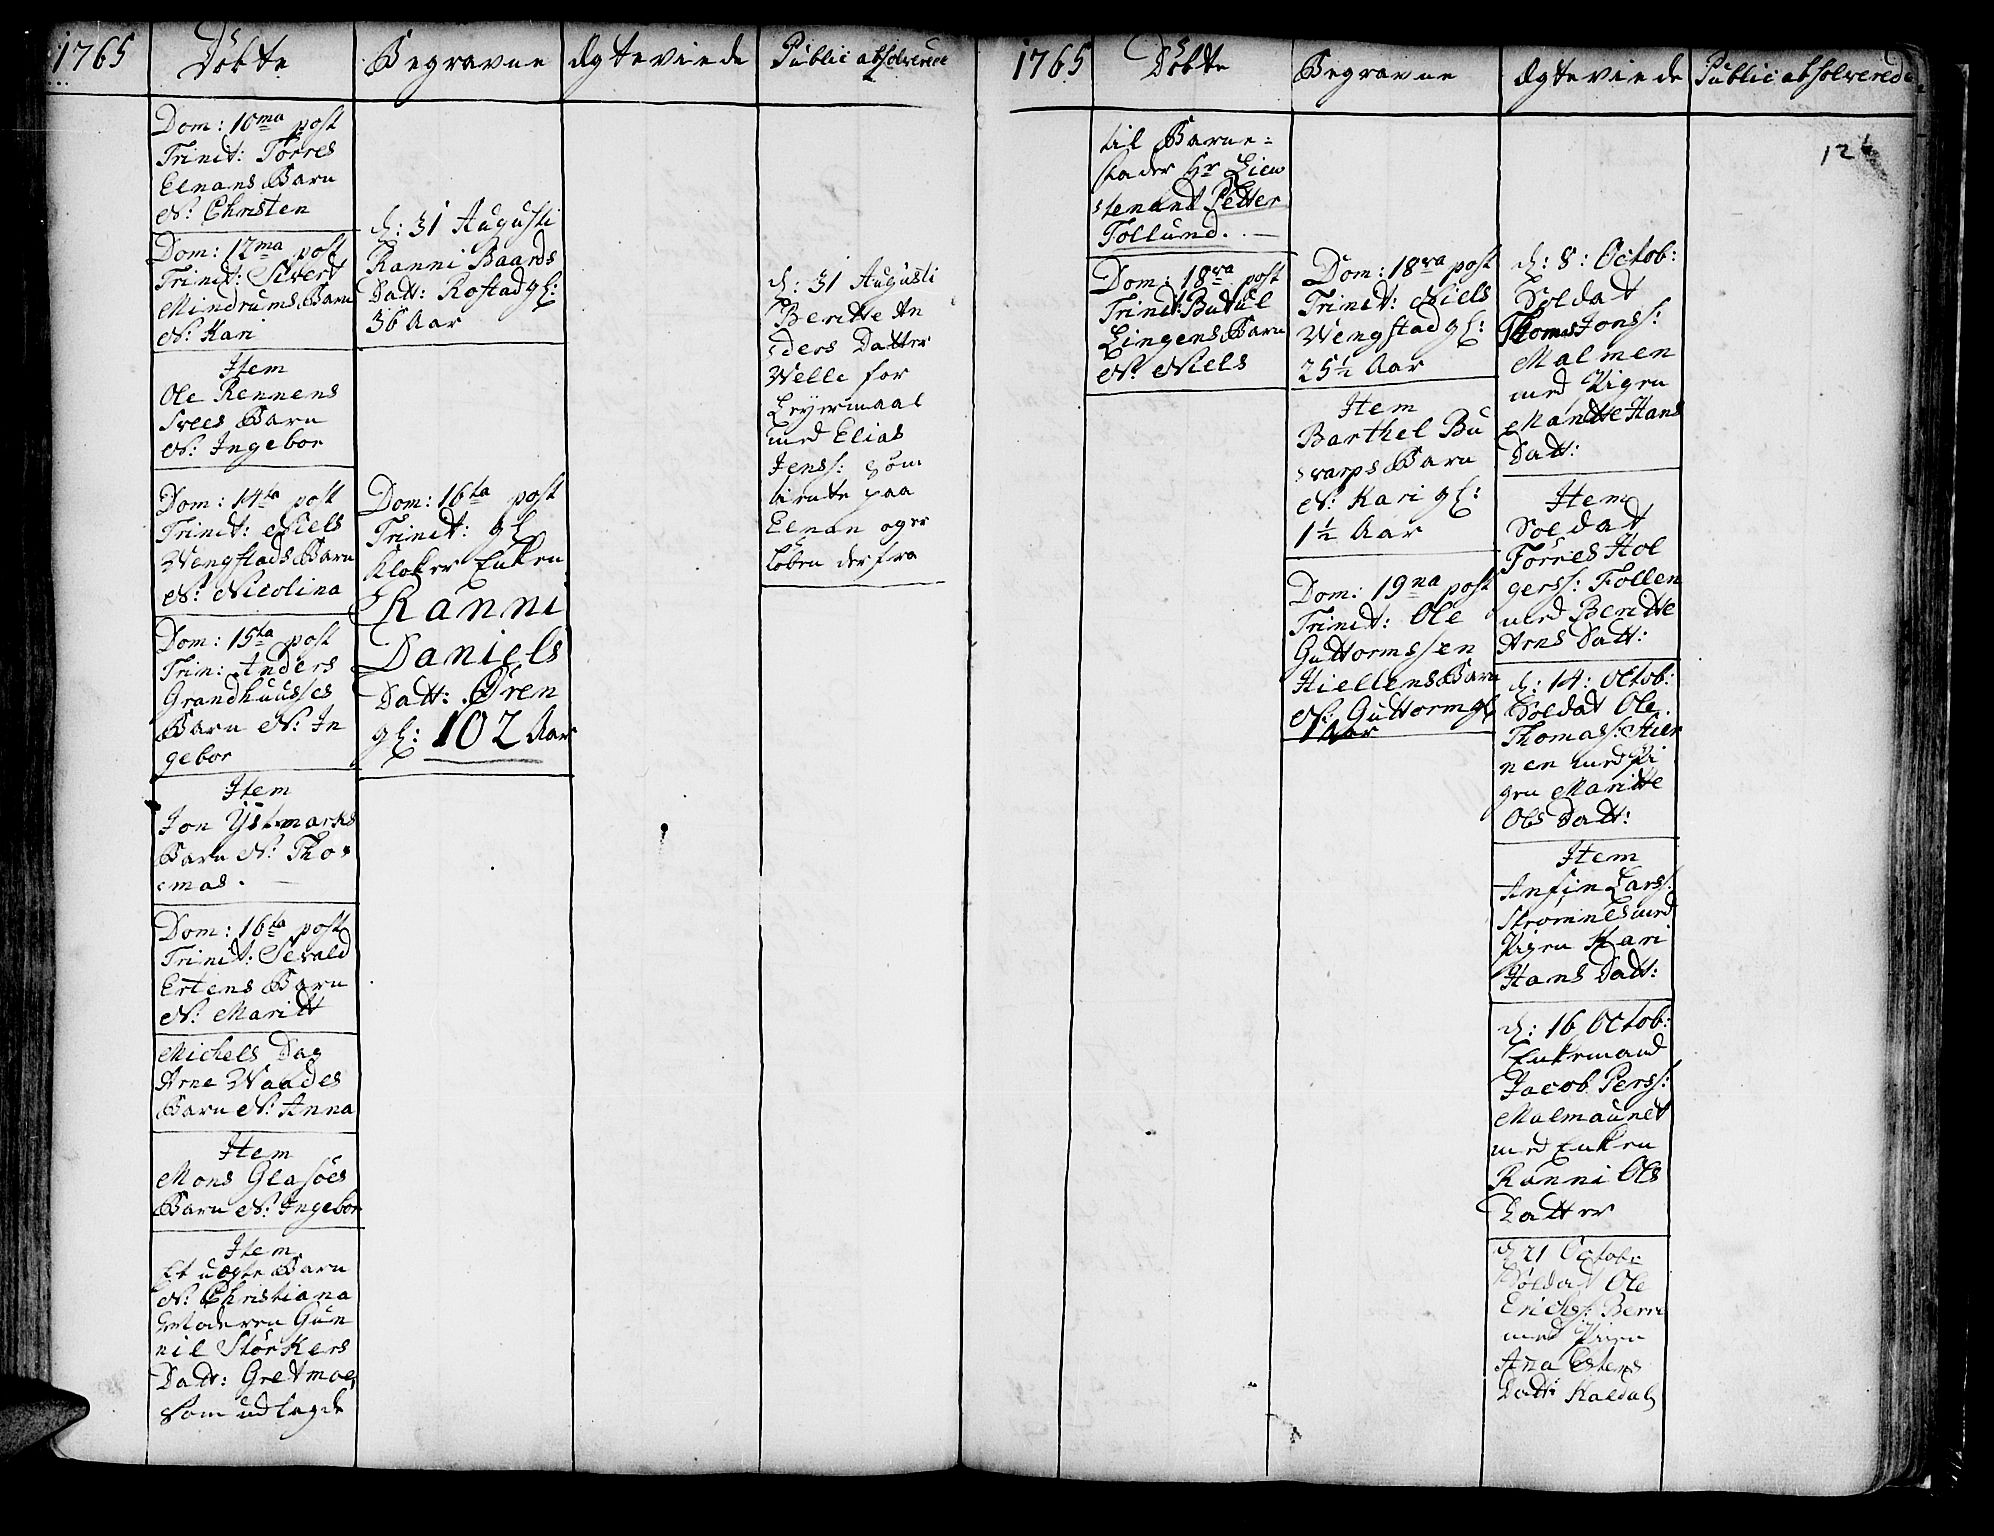 1765
Döbte
Begravne
Ægteviede
Publicè absolverede
Dom: 10ma post
Trinit: Torres
Elnans Barn
N: Christen
Dom: 12ma post
Trinit: Sivert
Mindrums Barn
N: Kari
Item
Ole Rennens
Svees Barn
N: Ingebor
Dom: 14ta post
Trinit: Niels
Wengstads Barn
N: Nicolina
Dom: 15ta post
Trin: Anders
Grandhuusses
Barn N: In
gebor
Item
Jon Ystmarks
Barn N: Tho=
=mas.
Dom: 16ta post
Trinit: Sevald
Ertens Barn
N: Maritt
Michels Dag
Arne Waades
Barn N: Anna
Item
Mons Glasöes
Barn N: Ingebor
Item
Et uægte Barn
N: Christiana
Moderen Gun
nil Störkers
Datt: Gretmoe,
som udlagde
d: 31 Augusti
Ranni Baards
Datt: Rostad gl:
36 Aar
Dom: 16ta post
Trinit: gl
Kloker Enken
Ranni
Daniels
Datt: Ören
gl: 102 Aar
d: 31 Augusti
Beritte An
ders Datter
Welle for
Leyermaal
med Elias
Jenss: som
tiente paa
Elnan og er
löben derfra
1765
Döbte
Begravne
Ægteviede
Publicè absolverede
til Barne=
fader Hr Liew
tenant Petter
Tollund.
Dom: 18va post
Trinit: Butul
Lingens Barn
N: Niels
Dom: 18va post
Trinit: Niels
Wengstad gl:
25½ Aar
Item
Barthel Bu
svarps Barn
N: Kari gl:
1½ Aar
Dom: 19na post
Trinit: Ole
Guttormssen
Hiellens Barn
N: Guttorm gl
1 Aar
d: 8: Octob:
Soldat
Thomas Jonss:
Malmen
med Pigen
Manette Hans
Datt:
Item
Soldat
Törres Hol
gerss: Follen
med Beritte
Arns Datt:
d: 14: Octob:
Soldat Ole
Thomass: Stier
nen med Pi
gen Maritte
Ols Datt:
Item
Anfin Larss:
Strömnes med
Pigen Kari
Hans Datt:
d: 16 Octob:
Enkemand
Jacob Perss:
Malmaunet
med Enken
Ranni Ols
Datter
d 21 Octob:
Soldat Ole
Erichss: Berre
med Pigen
Ana Estens
Datt: Kaldal